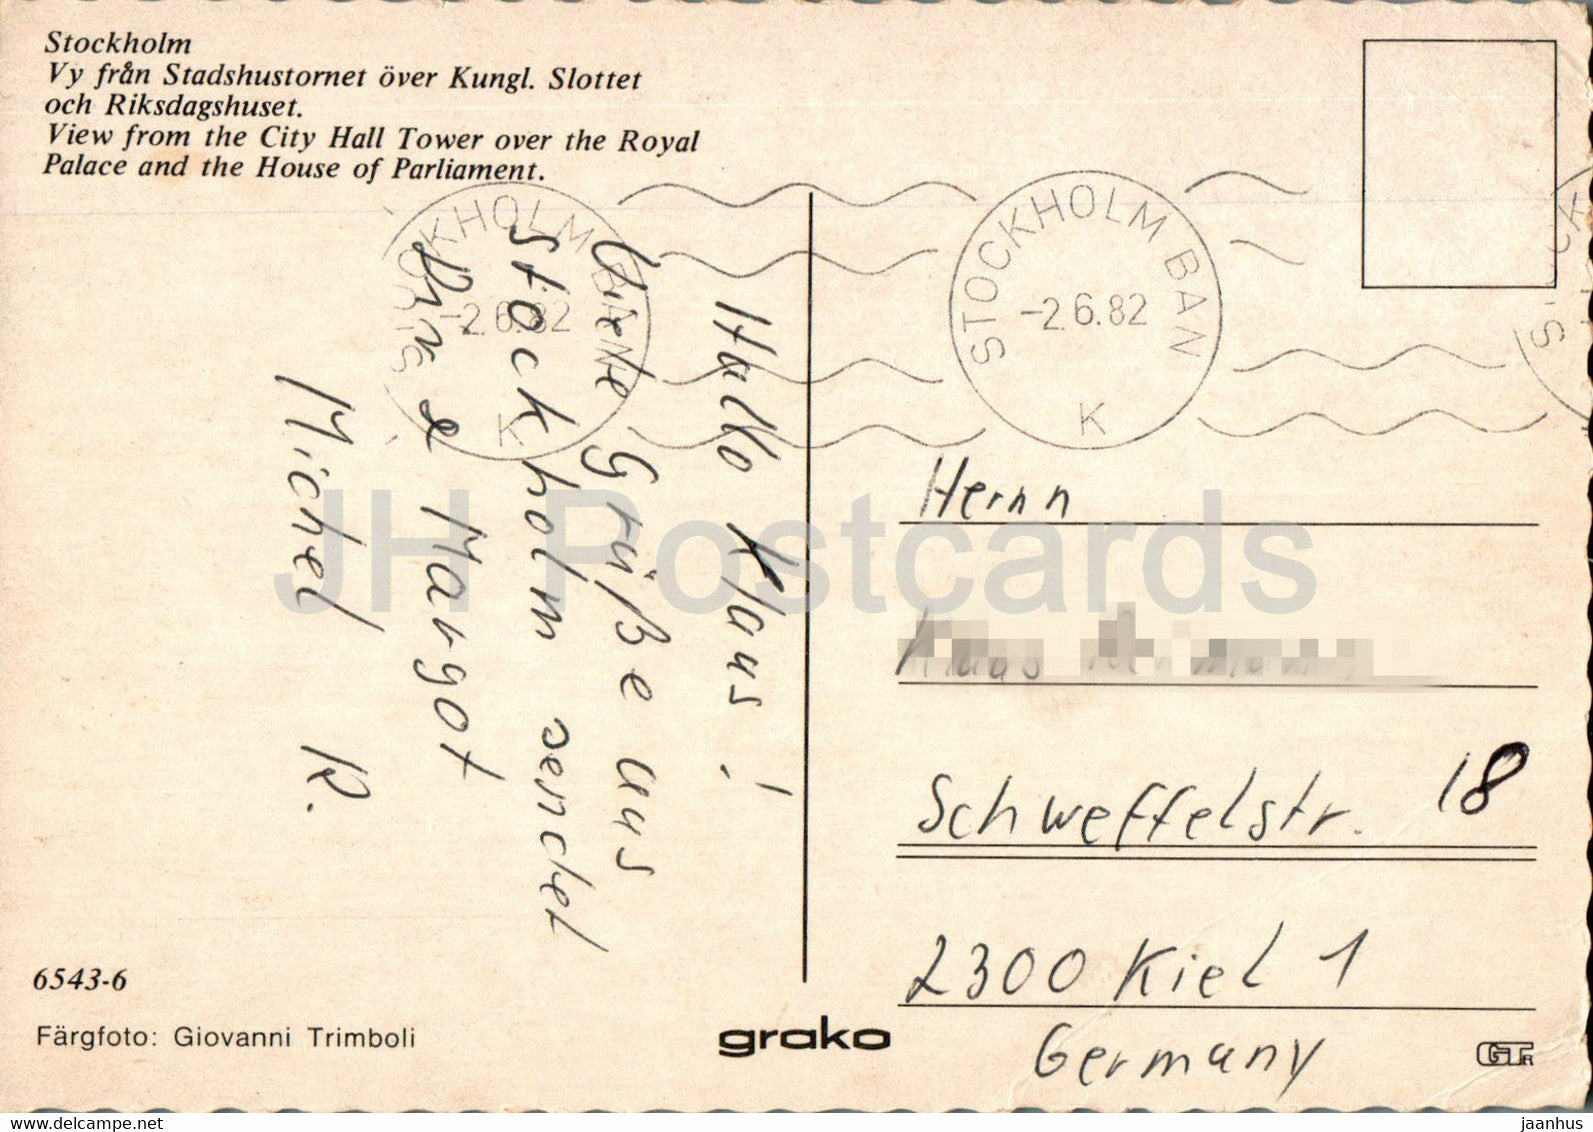 Stockholm
Vy från Stadshustornet över Kungl. Slottet
och Riksdagshuset.
View from the City Hall Tower over the Royal
Palace and the House of Parliament.
STOCKHOLM BAN
-2.6.82
K
STOCKHOLM BAN
-2.6.82
K
Hallo Klaus!
Viele Grüße aus
Stockholm sendet
Margot
Michel R.
Herrn
Schweffelstr. 18
2300 Kiel 1
Germany
6543-6
Färgfoto: Giovanni Trimboli
grako
JH Postcards
www.delcampe.net
jaanhus